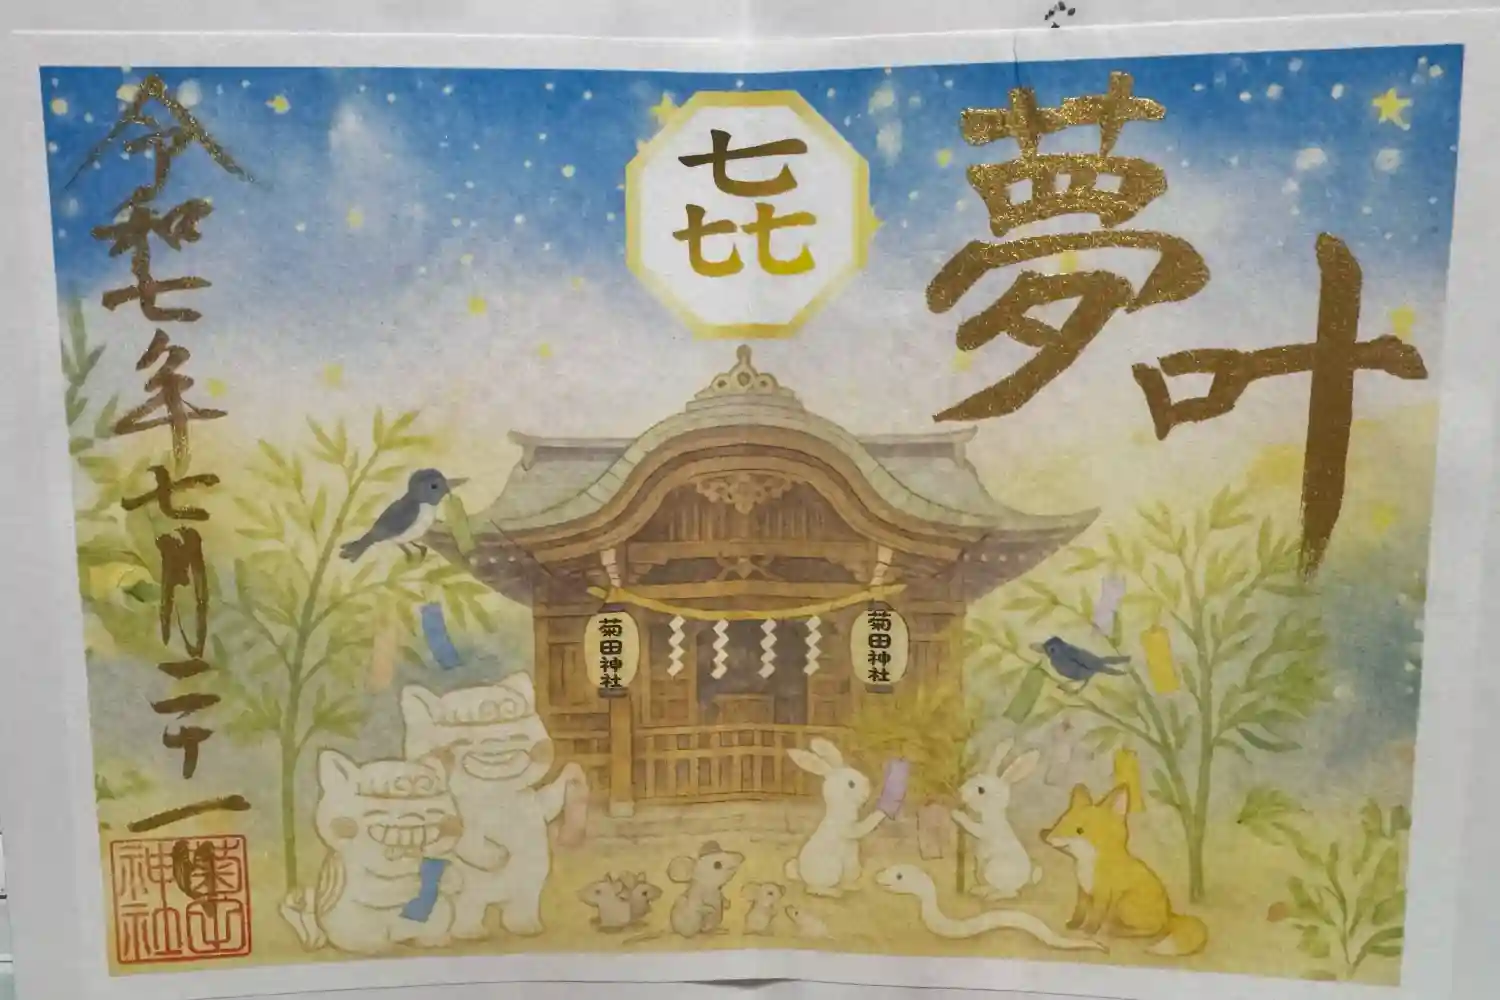 夢叶
㐂
菊田神社
菊田神社
令和七年七月二十一日
菊田神社